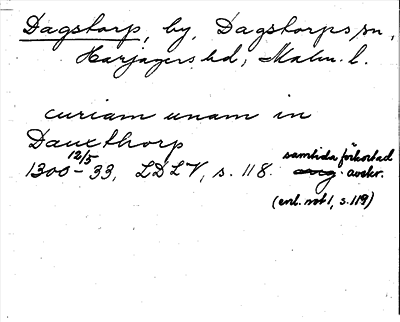 Dagstorp, by, Dagstorps sn,
Harjagers hd, Malm. l.
curiam unam in
Dauxthorp
12/5
1300-33, LDLV, s. 118. samtida förkortad
orig. avskr.
(enl. not 1, s. 119)